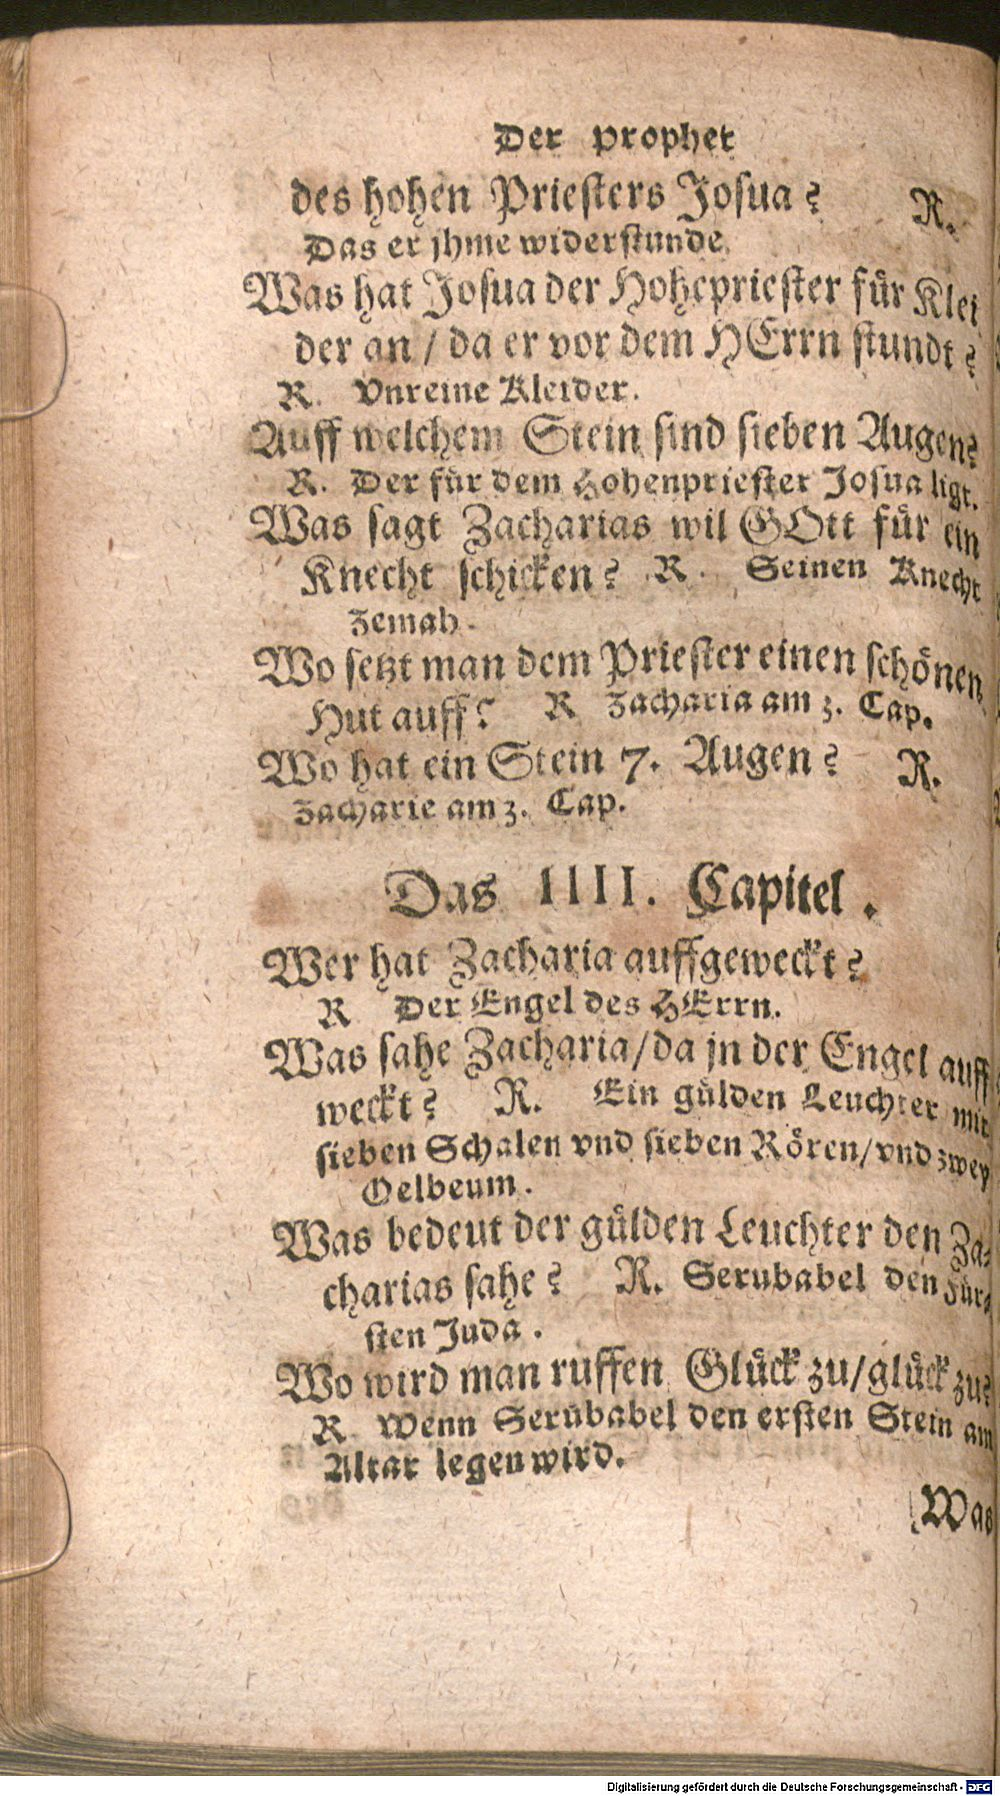 Der Prophet
des hohen Priesters Josua? R.
Das er jhme widerstunde.
Was hat Josua der Hohepriester für Klei
der an / da er vor dem HErrn stundt?
R. Vnreine Kleider.
Auff welchem Stein sind sieben Augen?
R. Der für dem Hohenpriester Josua ligt.
Was sagt Zacharias wil GOtt für ein
Knecht schicken? R. Seinen Knecht
Zemah.
Wo setzt man dem Priester einen schönen
Hut auff? R Zacharia am 3. Cap.
Wo hat ein Stein 7. Augen? R.
Zacharie am 3. Cap.
Das IIII. Capitel.
Wer hat Zacharia auffgeweckt?
R Der Engel des HErrn.
Was sahe Zacharia / da jn der Engel auff
weckt? R. Ein gülden Leuchter mit
sieben Schalen vnd sieben Rören / vnd zwey
Oelbeum.
Was bedeut der gülden Leuchter den Za-
charias sahe? R. Serubabel den Für-
sten Juda.
Wo wird man ruffen Glück zu / glück zu?
R Wenn Serubabel den ersten Stein am
Altar legen wird.
Was
Digitalisierung gefördert durch die Deutsche Forschungsgemeinschaft - DFG